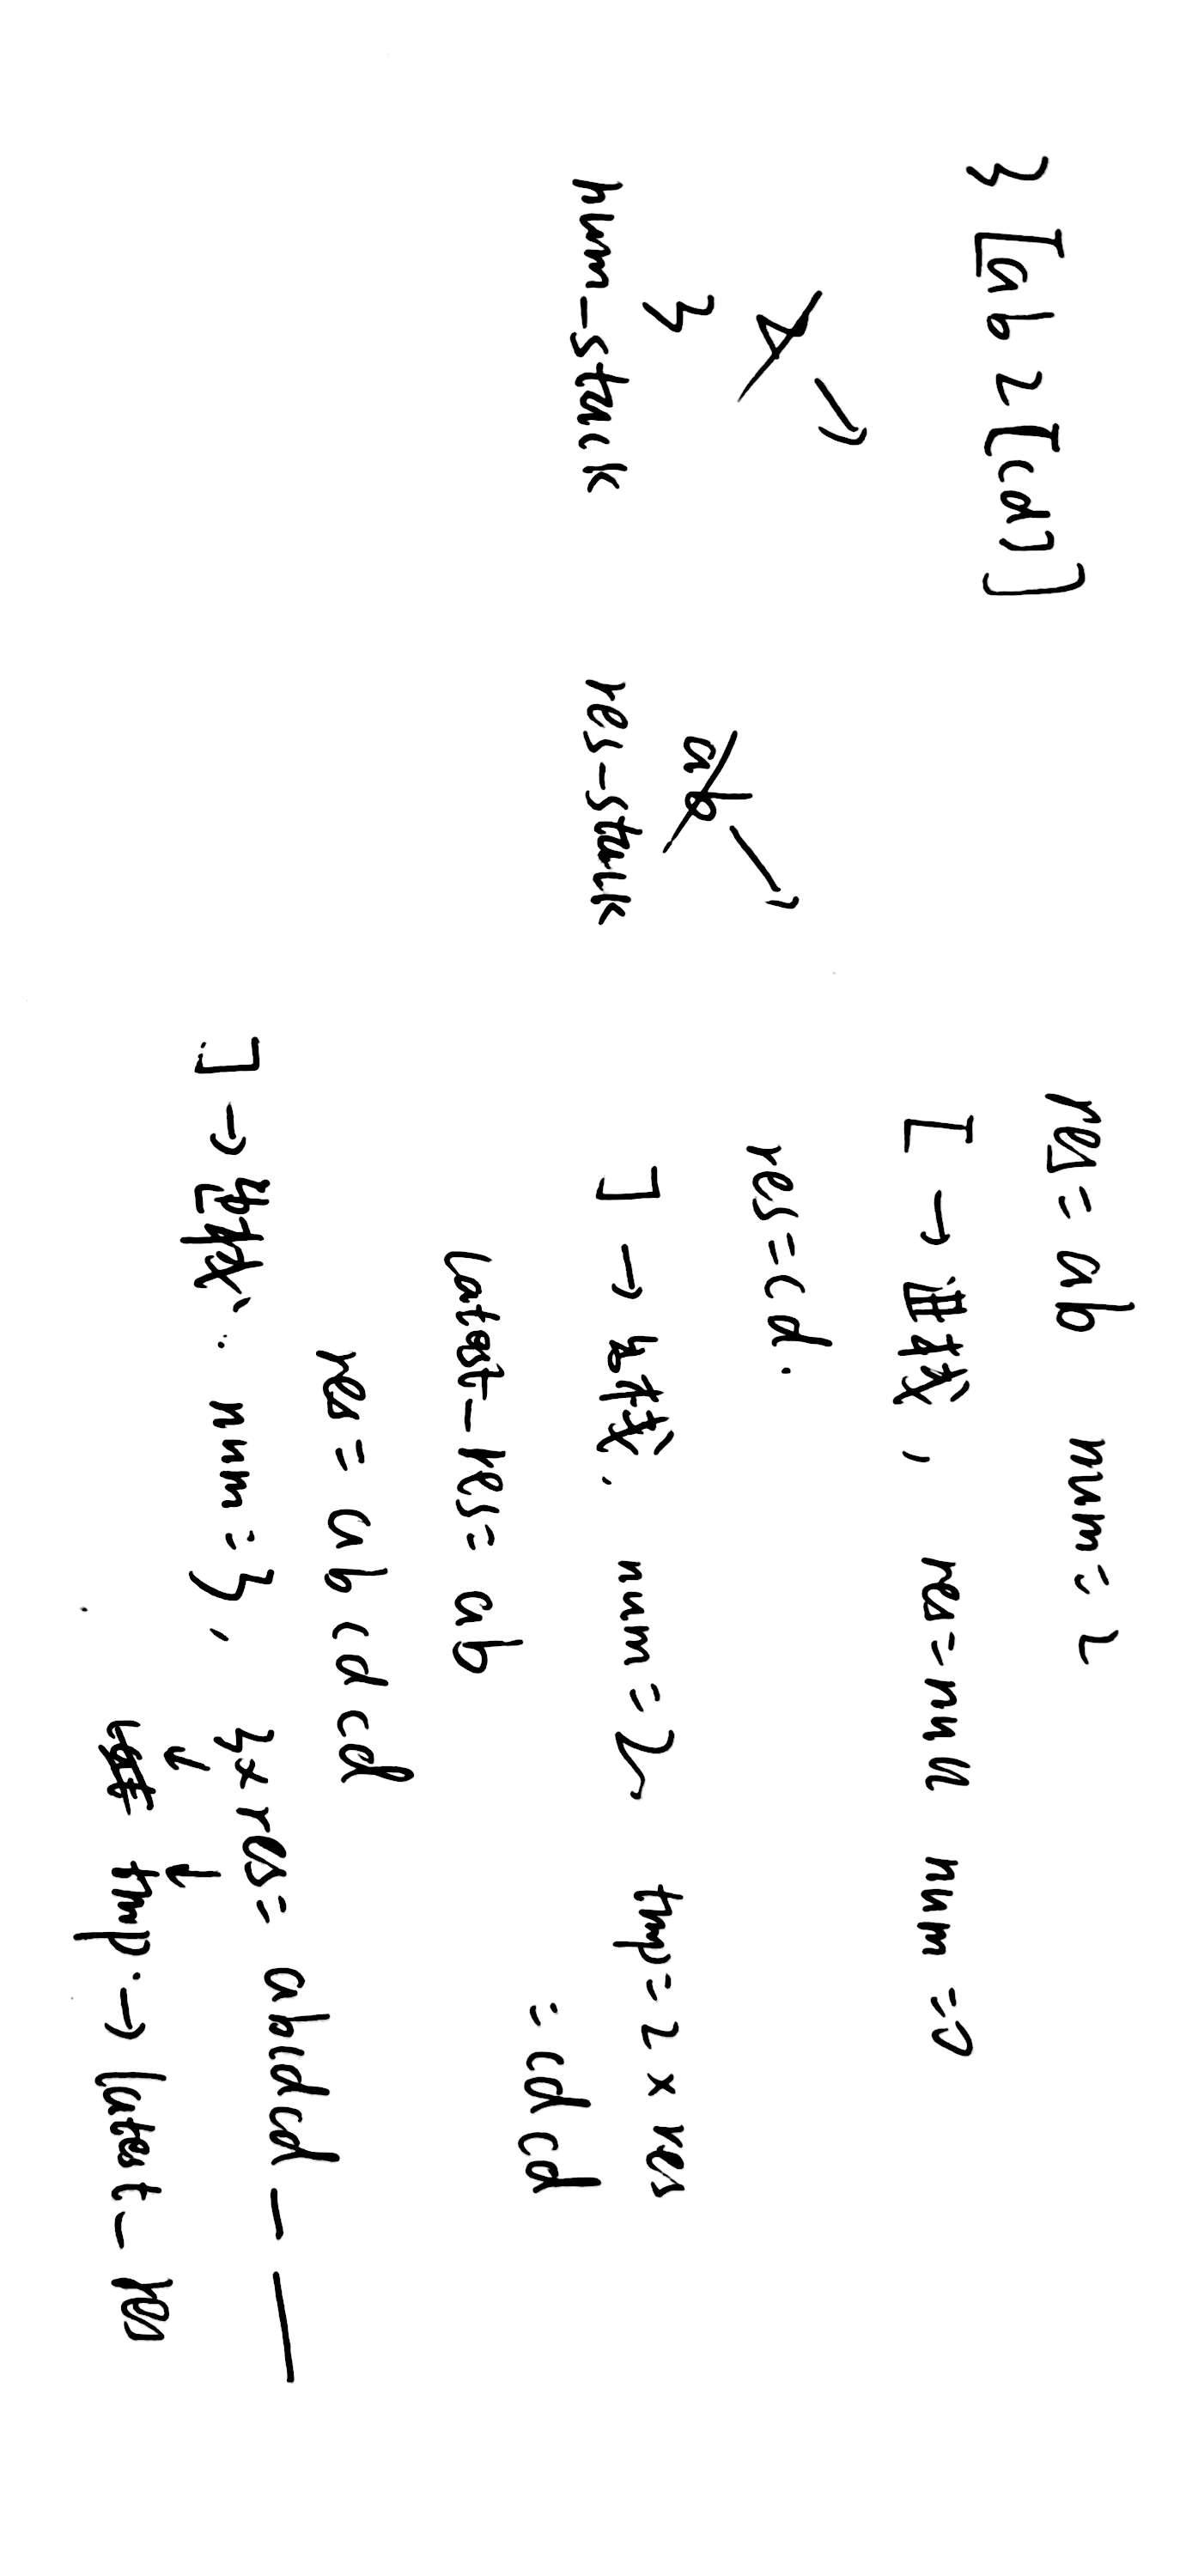 3[ab2[cd]]
2
3
num_stack
ab
res_stack
res=ab num=2
[→进栈, res=null num=0
res=cd.
]→出栈. num=2, tmp=2×res
=cdcd
latest_res=ab
res=abcdcd
]→出栈. num=3, 3×res=abcdcd——
↓ ↓
tmp.→latest_res